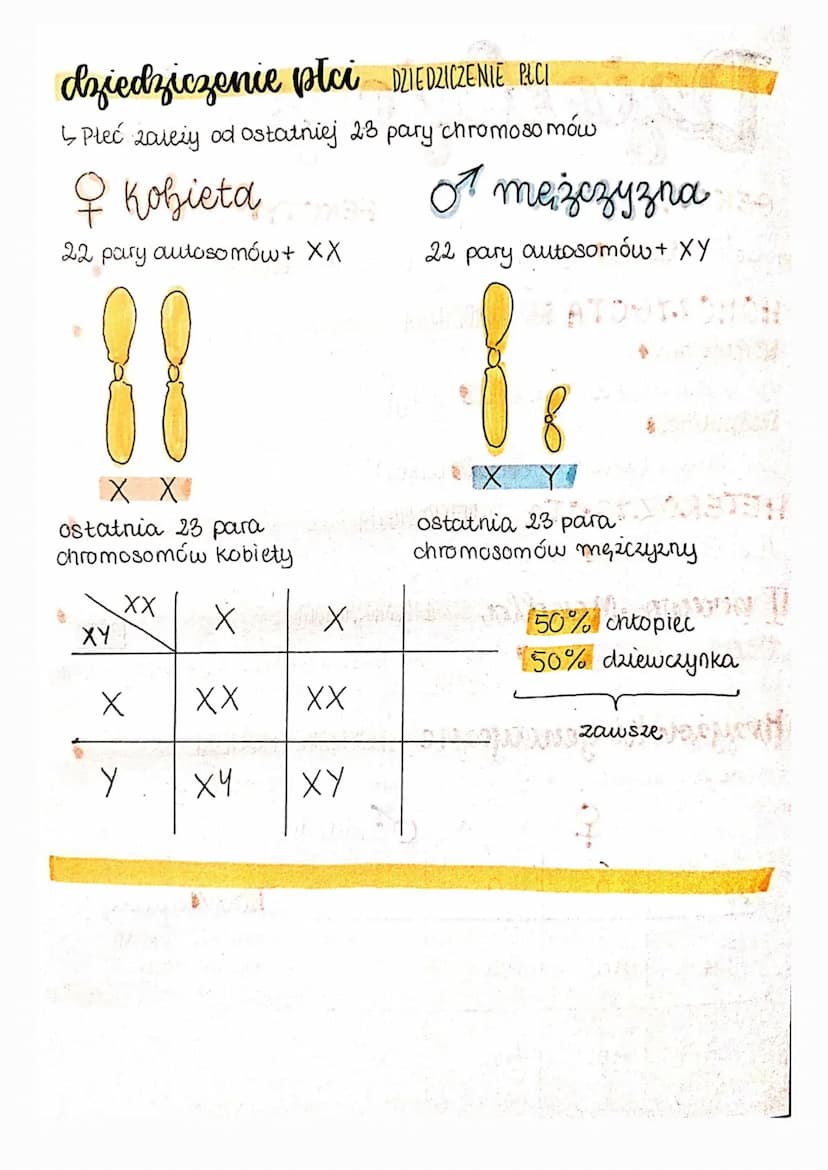 dziedziczenie płci DZIEDZICZENIE PŁCI
↳ Płeć zależy od ostatniej 23 pary chromosomów
♀ Kobieta
22 pary autosomów + XX
X X
ostatnia 23 para
chromosomów kobiety
♂ mężczyzna
22 pary autosomów + XY
X Y
ostatnia 23 para
chromosomów mężczyzny
XX X X
XY
X XX XX
Y XY XY
50% chłopiec
50% dziewczynka
zawsze